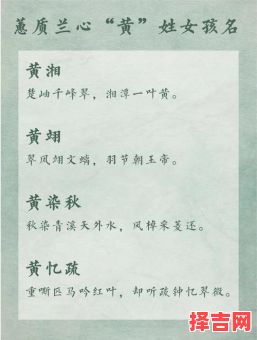 蕙质兰心“黄”姓女孩名
黄湘
楚岫千峰翠，湘潭一叶黄。
黄翊
翠凤翊文螭，羽节朝玉帝。
黄染秋
秋染青溪天外水，风棹采菱还。
黄忆疏
重嘶匹马吟红叶，却听疏钟忆翠微。
择吉网